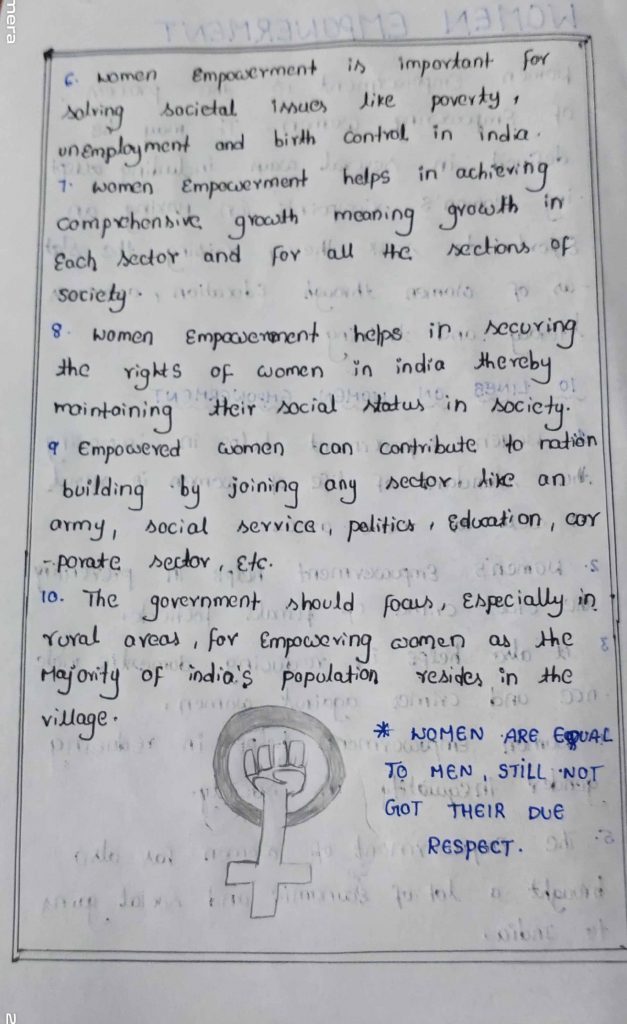 6. women Empowerment is important for
solving societal issues like poverty,
unEmployment and birth control in india.
7. women Empowerment helps in achieving
comprehensive growth meaning growth in
Each sector and for all the sections of
society.
8. women Empowerment helps in securing
the rights of women in india thereby
maintaining their social status in society.
9 Empowered women can contribute to nation
building by joining any sector like an
army, social service, politics, Education, cor
-porate sector, Etc.
10. The government should focus, Especially in
rural areas, for Empowering women as the
Majority of india's population resides in the
village.
* WOMEN ARE EQUAL
TO MEN, STILL NOT
GOT THEIR DUE
RESPECT.